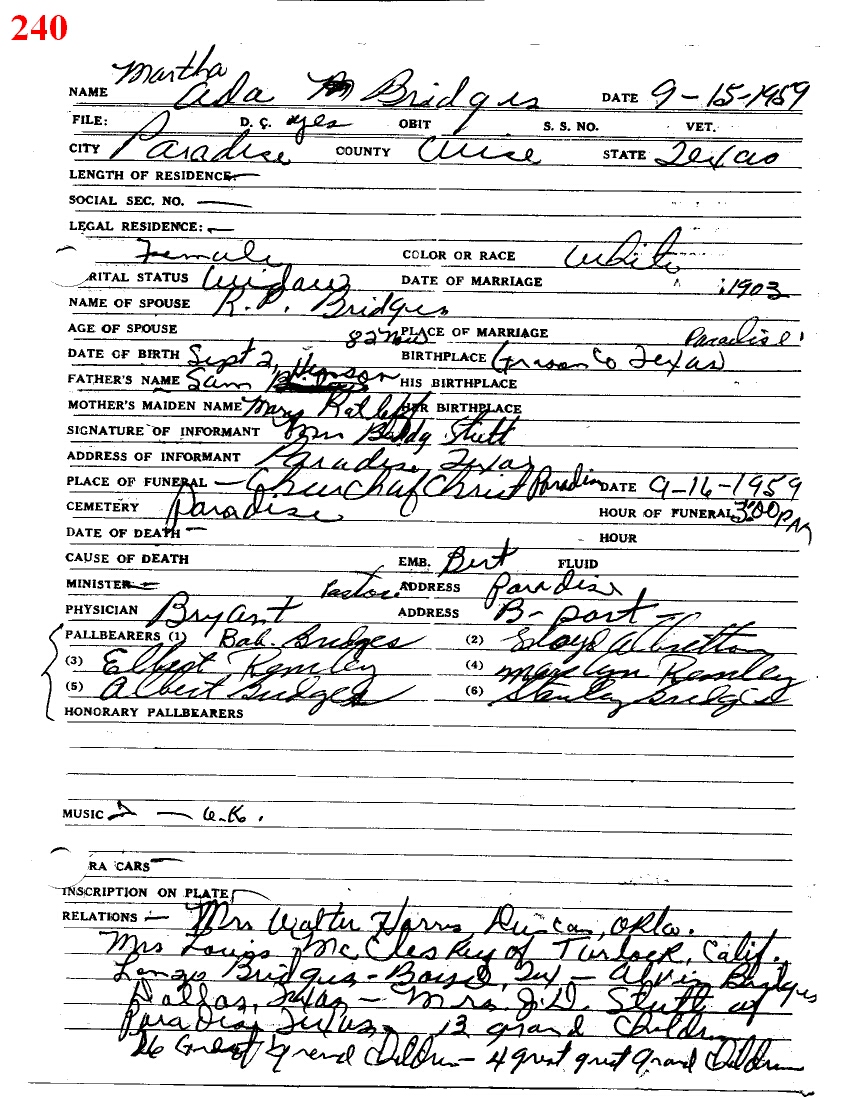 240
Martha
NAME Ada M Bridges DATE 9-15-1959
FILE: D. C. yes OBIT S. S. NO. VET.
CITY Paradise COUNTY Wise STATE Texas
LENGTH OF RESIDENCE
SOCIAL SEC. NO. —
LEGAL RESIDENCE: —
Female COLOR OR RACE White
RITAL STATUS Widow DATE OF MARRIAGE 1903
NAME OF SPOUSE R. P. Bridges
AGE OF SPOUSE 82 PLACE OF MARRIAGE Paradise
DATE OF BIRTH Sept 2, BIRTHPLACE Grason Co Texas
FATHER'S NAME Sam Hinson HIS BIRTHPLACE
MOTHER'S MAIDEN NAME Mary Ratleff HER BIRTHPLACE
SIGNATURE OF INFORMANT Mrs Stutt
ADDRESS OF INFORMANT Paradise, Texas
PLACE OF FUNERAL — Church of Christ Paradise DATE 9-16-1959
CEMETERY Paradise HOUR OF FUNERAL 3:00 PM
DATE OF DEATH — HOUR
CAUSE OF DEATH EMB. Bert FLUID
MINISTER — ADDRESS Paradise
PHYSICIAN Bryant ADDRESS B-port —
PALLBEARERS (1) Bob. Bridges (2) Lloyd Albritton
(3) Elbert Remley (4) Remley
(5) Albert Bridges (6) Stanley Bridges
HONORARY PALLBEARERS
MUSIC — O.K.
RA CARS —
INSCRIPTION ON PLATE
RELATIONS — Mrs Walter Harris Duncan, Okla.
Mrs Louis McCleskey of Turlock, Calif.
Lonzo Bridges - Boyd, Tex — Alvin Bridges
Dallas, Texas — Mrs. J.D. Stutt of
Paradise, Texas, 13 grand Children
26 Great grand Children - 4 great great grand Children